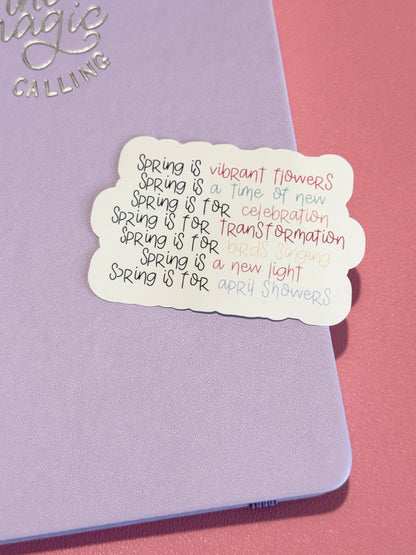 the
magic
CALLING
SPRING IS vibrant flowers
SPRING IS a time of new
SPRING IS FOR celebration
SPRING IS FOR transformation
SPRING IS FOR birds singing
SPRING IS a new light
SPRING IS FOR april showers